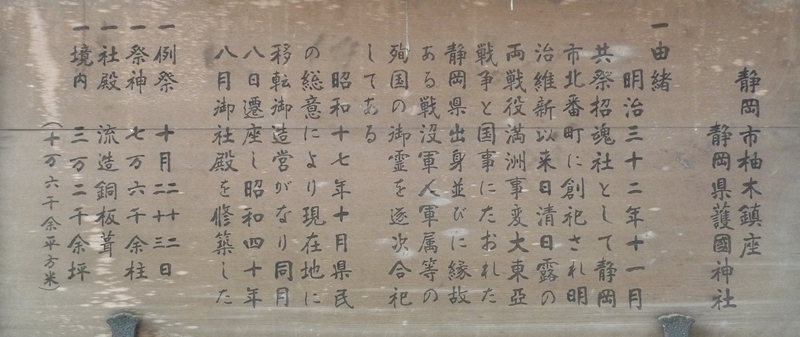 静岡市柚木鎮座
静岡県護國神社
一由緒
明治三十二年十一月
共祭招魂社として静岡
市北番町に創祀され明
治維新以来日清日露の
両戦役満洲事変大東亞
戦争と国事にたおれた
静岡県出身並びに縁故
ある戦没軍人軍属等の
殉国の御霊を逐次合祀
してある
昭和十七年十月県民
の総意により現在地に
移転御造営がなり同月
八日遷座し昭和四十年
八月御社殿を修築した
一例祭 十月二十二日
二十三
一祭神 七万六千余柱
一社殿 流造銅板葺
一境内 三万二千余坪
(十万六千余平方米)